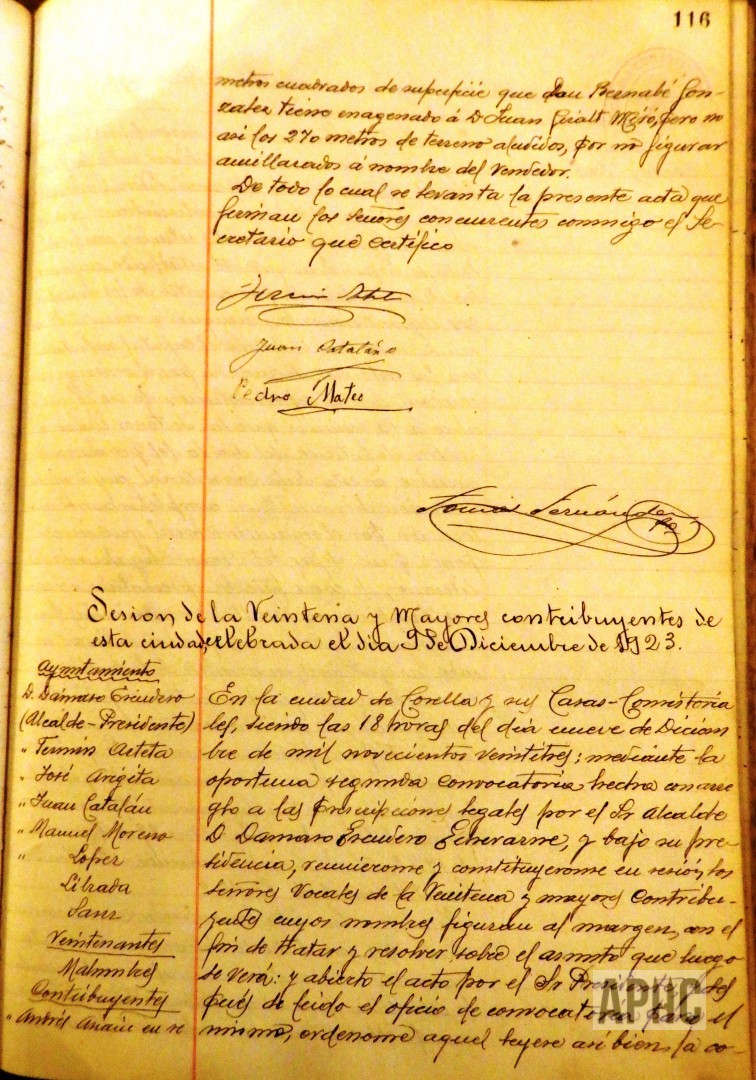 116
metros cuadrados de superficie que Don Bernabé Gon-
zalez tiene enagenado á D. Juan Giralt Miró, pero no
asi los 270 metros de terreno aludidos, por no figurar
amillarados á nombre del vendedor.
De todo lo cual se levanta la presente acta que
firman los señores concurrentes conmigo el Se-
cretario que certifico
Juan Catalán
Pedro Mateo
Fernández
Sesion de la Veintena y Mayores contribuyentes de
esta ciudad, celebrada el dia 9 de Diciembre de 1923.
Ayuntamiento
D. Dámaso Escudero
(Alcalde-Presidente)
" Fermin Arteta
" José Arigita
" Juan Catalán
" Manuel Moreno
" Lopez
Librada
Sanz
Veintenantes
Contribuyentes
" Andrés en re
En la ciudad de Corella y sus Casas-Consistoria
les, siendo las 18 horas del dia nueve de Diciem
bre de mil novecientos veintitres; mediante la
oportuna segunda convocatoria hecha con arre
glo a las prescripciones legales por el Sr. Alcalde
D. Dámaso Escudero Echevarne, y bajo su pre
sidencia, reunieronse y constituyeronse en sesión, los
señores Vocales de la Veintena y mayores Contribu-
yentes cuyos nombres figuran al margen, con el
fin de tratar y resolver sobre el asunto que luego
se verá: y abierto el acto por el Sr. Presidente y des
pués de leido el oficio de convocatoria para el
mismo, ordenome aquel leyese asi bien la co-
APHC